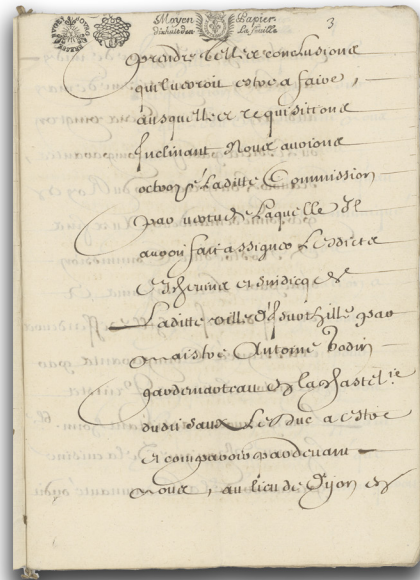 Moyen Papier
3
prendre telles conclusions
qu'il verroit estre a faire,
ausquelles requisitions
Inclinant Nous avions
octroyé Laditte Commission
par vertu de Laquelle Il
auroit fait assigner Lesdicts
Eschevins et sindicq de
Laditte ville d' par
Maistre Antoine Bodin
garde marteau en la chastel.ie
dudit Vaux Le Duc a estre
et comparoir pardevant
Nous, au lieu de Dijon en